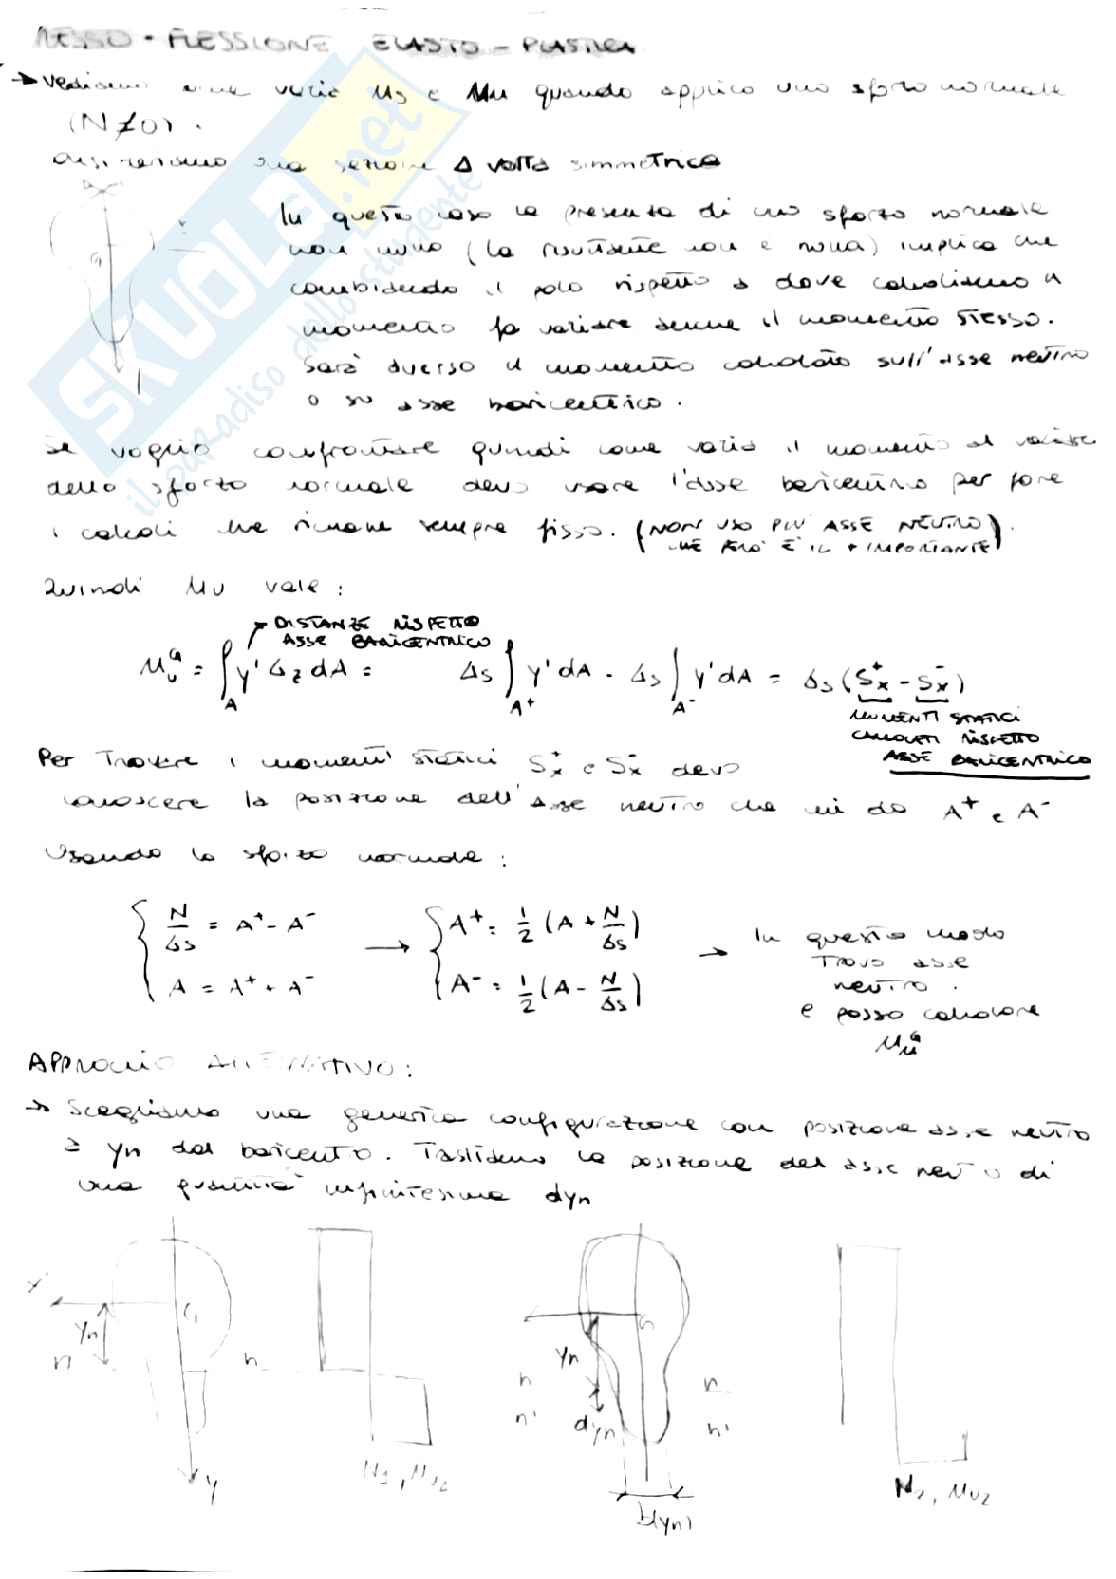 PRESSO-FLESSIONE ELASTO-PLASTICA
→ Vediamo come varia Ms e Mu quando applico uno sforzo normale
(N≠0).
una sezione 1 volta simmetrica
In questo caso la presenza di uno sforzo normale
non nullo (la risultante non è nulla) implica che
cambiando il polo rispetto a dove calcoliamo il
momento fa variare anche il momento stesso.
Sarà diverso il momento calcolato sull'asse neutro
o su asse baricentrico.
Se voglio confrontare quindi come varia il momento al variare
dello sforzo normale devo usare l'asse baricentrico per fare
i calcoli che rimane sempre fisso. (NON USO PIÙ ASSE NEUTRO
CHE PERÒ È IL + IMPORTANTE).
Quindi Mu vale:
→ DISTANZE RISPETTO
ASSE BARICENTRICO
Mu^G = ∫_A y' σz dA = σs ∫_A+ y' dA - σs ∫_A- y' dA = σs (Sx^+ - Sx^-)
MOMENTI STATICI
CALCOLATI RISPETTO
ASSE BARICENTRICO
Per trovare i momenti statici Sx^+ e Sx^- devo
conoscere la posizione dell'asse neutro che mi da A+ e A-
Usando lo sforzo normale:
{ N/σs = A+ - A- → { A+ = 1/2 (A + N/σs) → In questo modo
{ A = A+ + A- { A- = 1/2 (A - N/σs) trovo asse
neutro.
e posso calcolare
Mu^G
APPROCCIO ALTERNATIVO:
→ Scegliamo una generica configurazione con posizione asse neutro
a yn dal baricentro. Trasliamo la posizione del asse neutro di
una quantità infinitesima dyn
x G yn n n y N1, Mu2
G yn n n' dyn n n' b(yn) N2, Mu2
SKUOLA.net
il paradiso dello studente